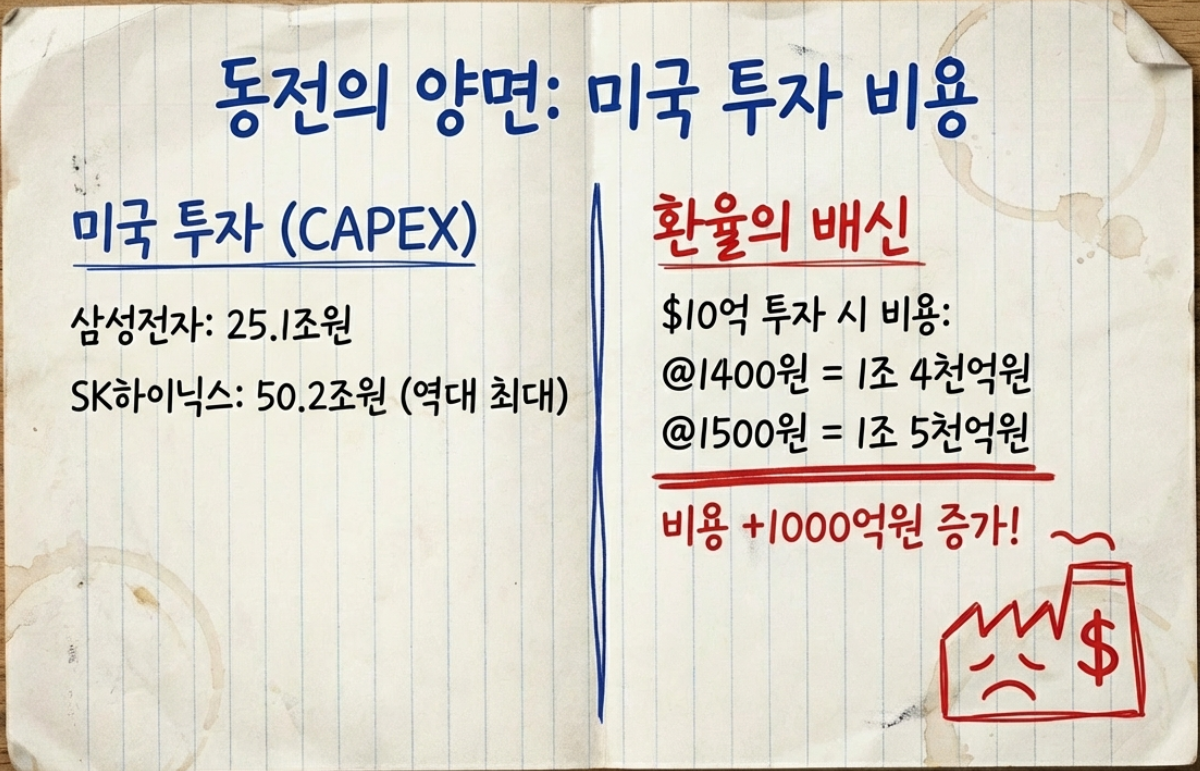 동전의 양면: 미국 투자 비용
미국 투자 (CAPEX)
삼성전자: 25.1조원
SK하이닉스: 50.2조원 (역대 최대)
환율의 배신
$10억 투자 시 비용:
@1400원 = 1조 4천억원
@1500원 = 1조 5천억원
비용 +1000억원 증가!
$